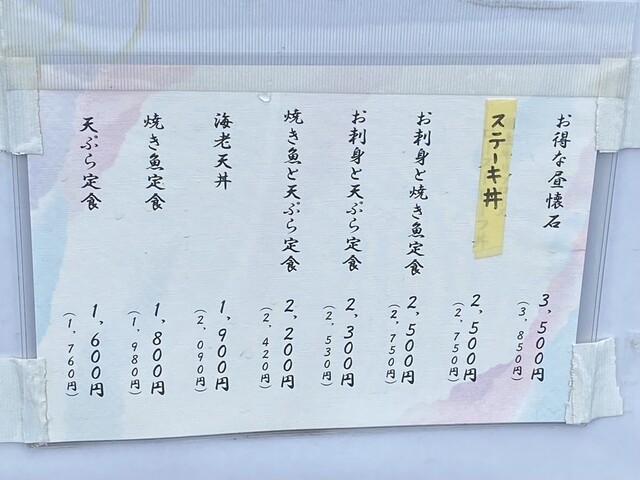 お得な昼懐石
3,500円
(3,850円)
ステーキ丼
2,500円
(2,750円)
お刺身と焼き魚定食
2,500円
(2,750円)
お刺身と天ぷら定食
2,300円
(2,530円)
焼き魚と天ぷら定食
2,200円
(2,420円)
海老天丼
1,900円
(2,090円)
焼き魚定食
1,800円
(1,980円)
天ぷら定食
1,600円
(1,760円)